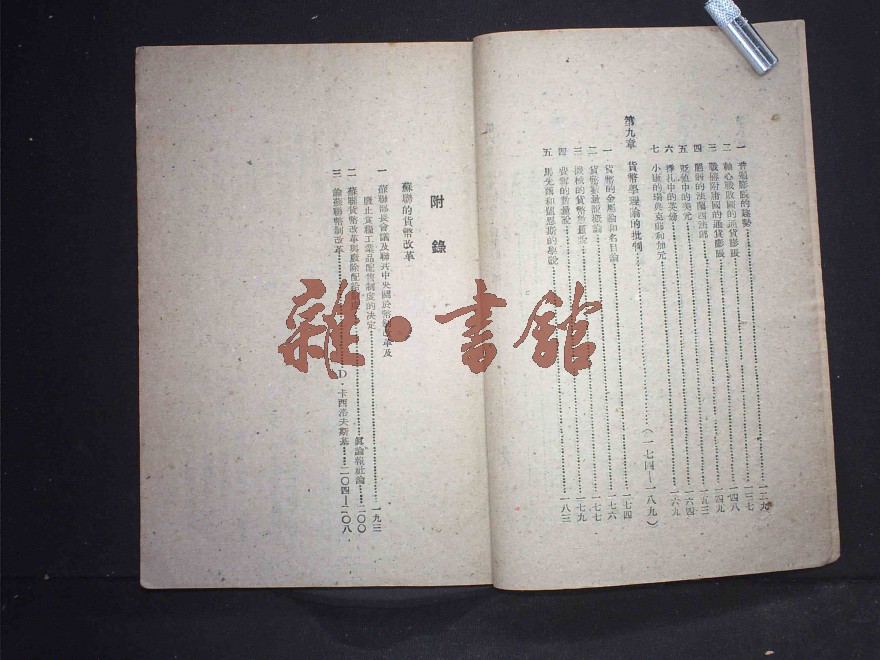 一 普遍膨脹的趨勢……一二九
二 軸心戰敗國的通貨膨脹……一三七
三 戰勝附庸國的通貨膨脹……一四八
四 膨脹的法蘭西法郎……一四九
五 貶值中的美元……一五三
六 掙扎中的英鎊……一六四
七 小康的瑞典克郎和加元……一六九
第九章 貨幣學理論的批判……(一七四—一八九)
一 貨幣的金屬論和名目論……一七四
二 貨幣數量說概論……一七六
三 機械的貨幣數量說……一七七
四 費雪的數量說……一七九
五 馬先爾和凱恩斯的學說……一八三
附錄
蘇聯的貨幣改革
一 蘇聯部長會議及聯共中央關於幣制改革及
廢止食糧工業品配售制度的決定……一九三
二 蘇聯貨幣改革與廢除配給制度……眞論報社論……二〇〇
三 論蘇聯幣制改革……D·卡西洛夫斯基……二〇四—二〇八
雜·書館